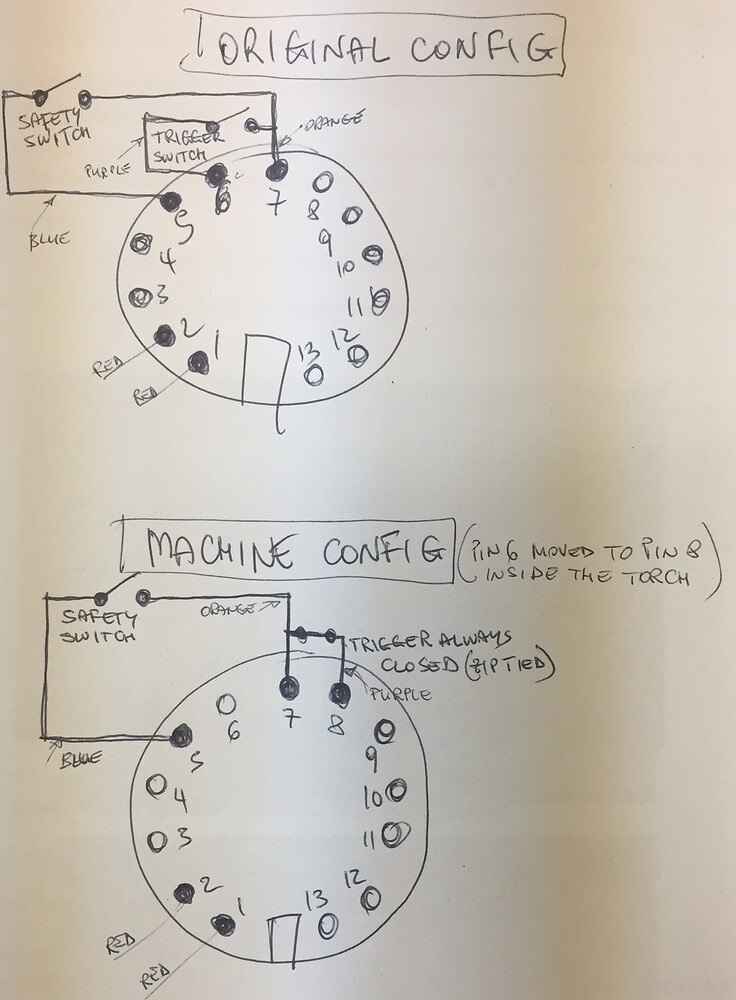 ORIGINAL CONFIG
SAFETY
SWITCH
TRIGGER
SWITCH
PURPLE
ORANGE
BLUE
5
6
7
8
9
10
11
12
13
4
3
2
1
RED
RED
MACHINE CONFIG
(PIN 6 MOVED TO PIN 8
INSIDE THE TORCH)
SAFETY
SWITCH
ORANGE
TRIGGER ALWAYS
CLOSED (ZIP TIED)
PURPLE
BLUE
5
6
7
8
9
10
11
12
13
4
3
2
1
RED
RED